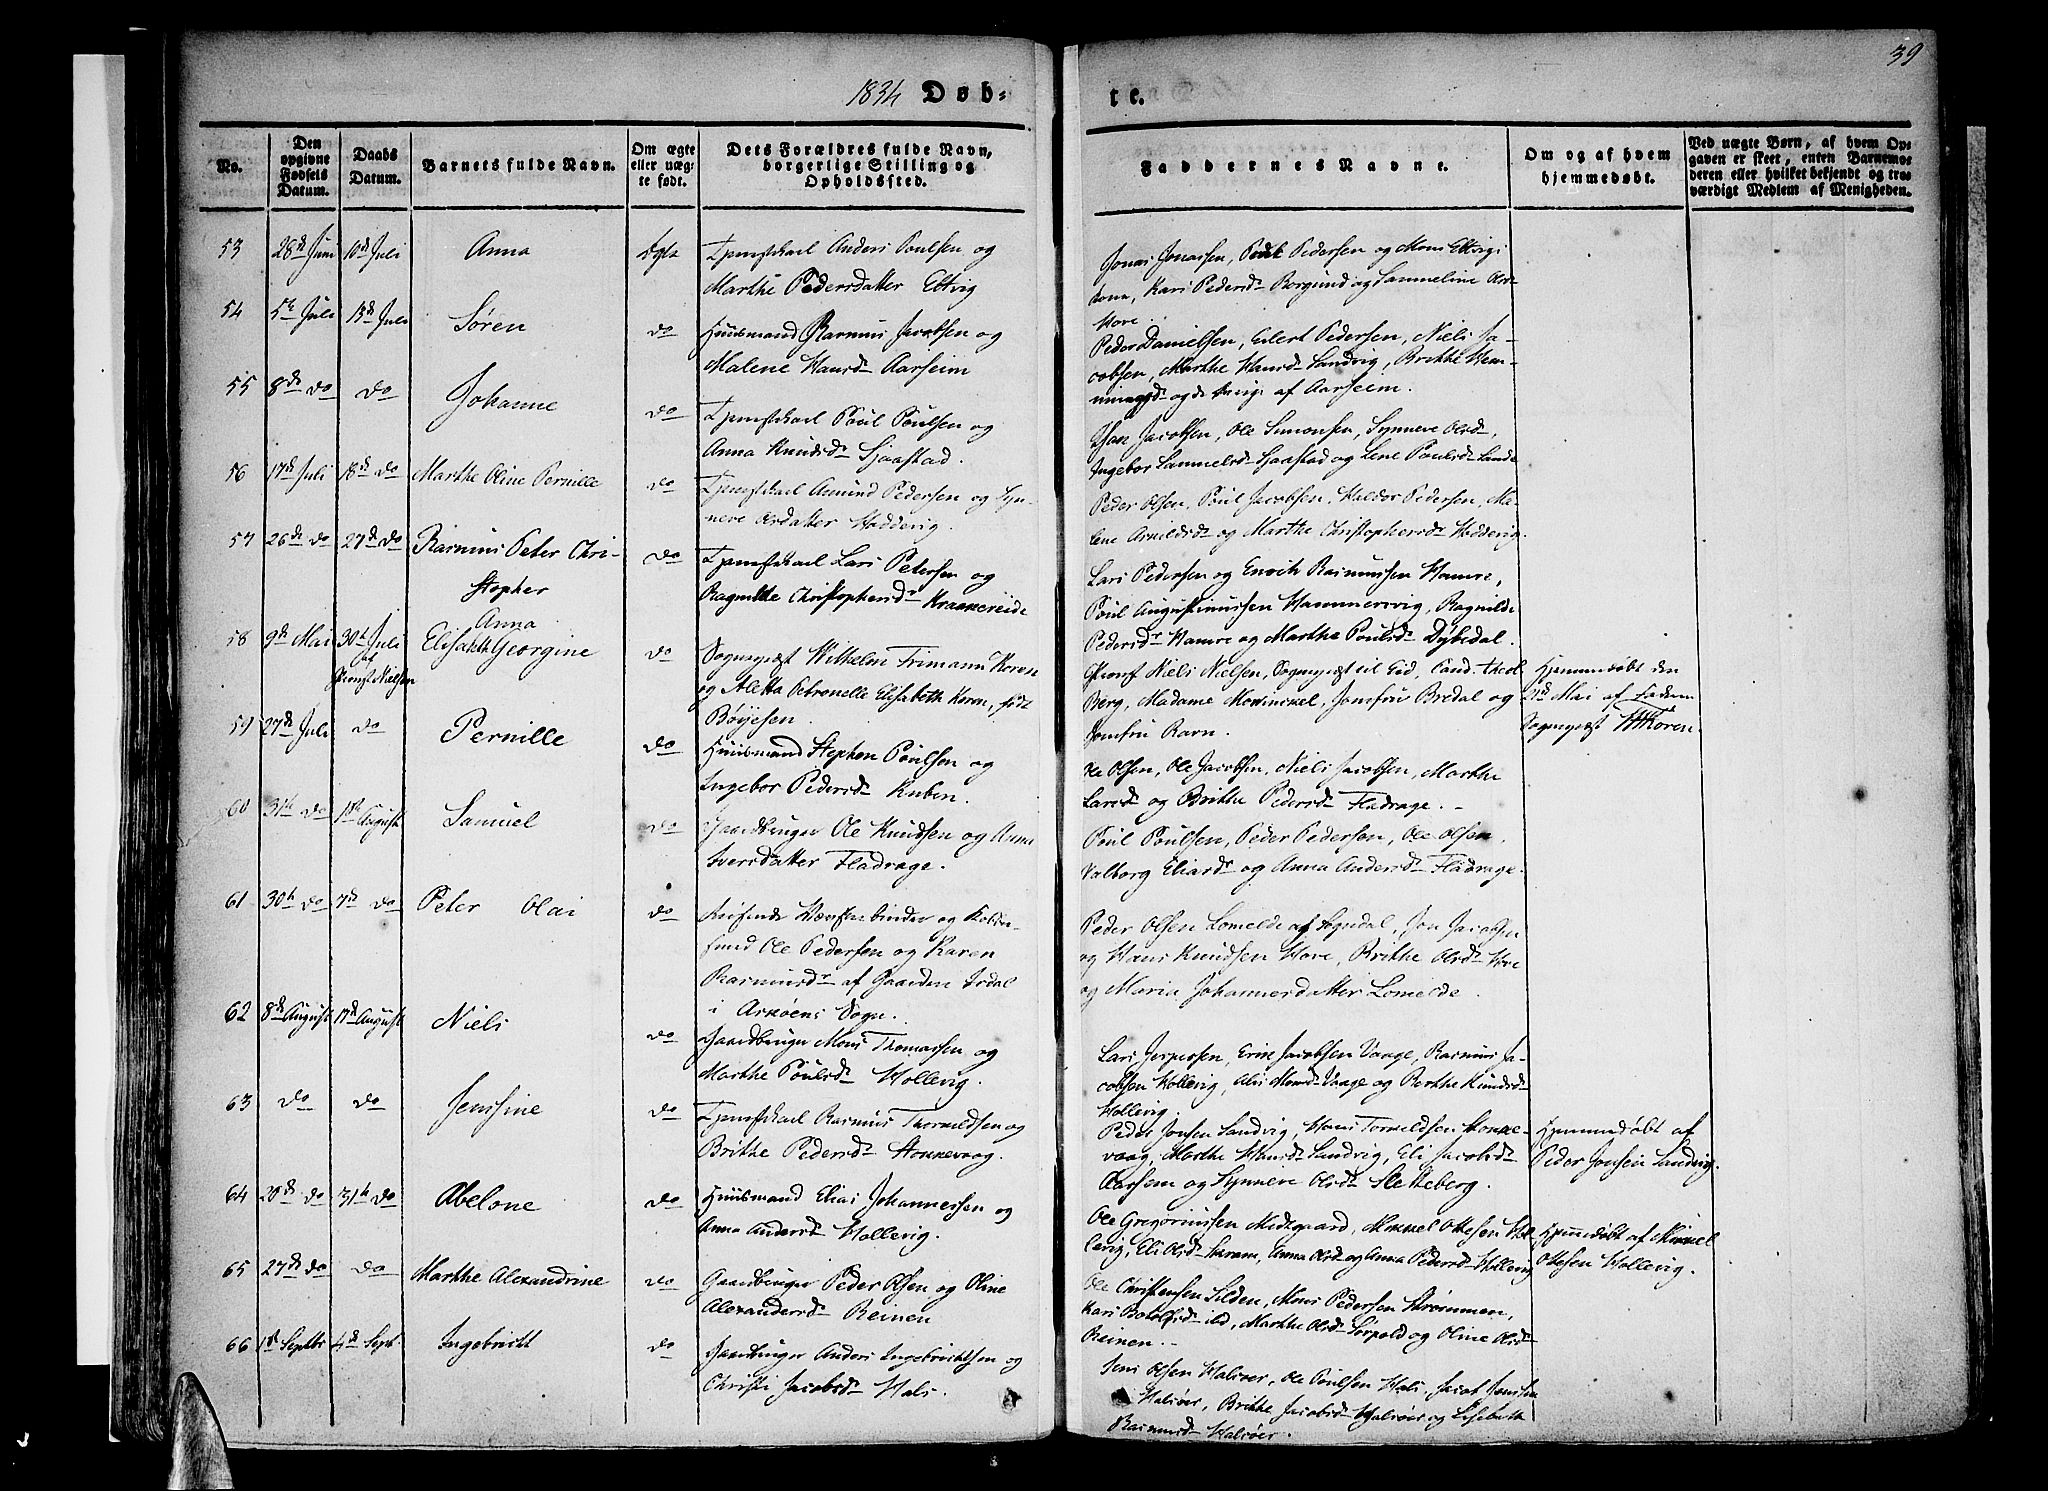 39
1834 Døb-
te.
No.
Den opgivne Fødsels Datum.
Daabs Datum.
Barnets fulde Navn.
Om ægte eller uægte født.
Dets Forældres fulde Navn, borgerlige Stilling og Opholdssted.
Faddernes Navne.
Om og af hvem hjemmedøbt.
Ved uægte Børn, af hvem Opgaven er skeet, enten Barnemoderen eller hvilket bekjendt og troværdigt Medlem af Menigheden.
53 28de Juni 10de Juli Anna Ægte
Tjenestekarl Anders Poulsen og
Marthe Pedersdatter Ettvig
Jonas Jonassen, Pedersen og Mons Ettvig
Kari Pedersd. Borgund og
Hove.
54 5te Juli 13de Juli Søren do
Huusmand Rasmus Jacobsen og
Malene Hansd. Aarseim
Peder Danielsen, Eilert Pedersen, Niels Ja-
cobsen, Marthe Hansd. Sandvig, Brithe Hem-
af Aarseem.
55 8de do do Johanne do
Tjenestekarl Poul Poulsen og
Anna Knudsd. Sjaastad.
Jacobsen, Ole Simonsen, Synneve Olsd.,
Ingebor Samuelsd. Sjaastad og Lene Poulsd. Sande
56 17de Juli 18de do Marthe Oline Pernille do
Tjenestekarl Amund Pedersen og Syn-
neve Olsdatter Hodderig.
Peder Olsen, Poul Jacobsen, Haldor Pedersen, Ma-
lene Arnildsd. og Marthe Christophersd. Hodderig.
57 26de do 27de do Rasmus Peter Chri-
stopher do
Tjenestekarl Lars Petersen og
Ragnilde Christophersd. Kraakereide
Lars Pedersen og Rasmussen Hamre,
Poul Augustinussen Hammersvig, Ragnilde
Pedersd. Hamre og Marthe Poulsd. Dybedal.
58 9de Mai 30te Juli
af
Provst Nielsen
Anna
Elisabeth Georgine do
Sognepræst Wilhelm Frimann Koren
og Aletta Petronelle Elisabeth Koren, født
Bøyesen.
Provst Niels Nielsen, Sognepræst til Eid, Cand. theol.
Berg, Madame Mowinckel, Jomfru Bredal og
Jomfru Ravn.
Hjemmedøbt den
21de Mai af Faderen
Sognepræst WFKoren.
59 27de Juli do Pernille do
Huusmand Stephen Poulsen og
Ingebor Pedersd. Kuben.
Ole Olsen, Ole Jacobsen, Niels Jacobsen, Marthe
Larsd. og Brithe Pedersd. Fladrage.
60 31te do 1ste August Samuel do
Gaardbruger Ole Knudsen og Anna
Iversdatter Fladrage.
Poul Poulsen, Peder Pedersen, Ole Olsen,
Valborg Eliasd. og Anna Andersd. Fladrage.
61 30te do 7de do Peter Olai do
Reisende og
Ole Pedersen og Karen
Rasmusd. af Gaarden
i Askøens Sogn.
Peder Olsen Lomelde af Sogndal, Jon Jacobsen
og Hans Knudsen Hove, Brithe Olsd. Hove
og Maria Johannesdatter Lomelde.
62 8de August 17de August Niels do
Gaardbruger Mons Thomassen og
Marthe Poulsd. Hollevig.
Lars Jespersen, Erik Jacobsen Vaage, Rasmus Ja-
cobsen Hollevig, Monsd. Vaage og Berthe Knudsd.
Hollevig.
63 do do Jensine do
Tjenestekarl Rasmus Thorkildsen og
Brithe Pedersd. Stokkevaag.
Peder Jonsen Sandvig, Hans Torkeldsen Stokke-
vaag, Marthe Hansd. Sandvig, Eli Jacobsd.
Aarsem og Synneve Olsd. Sletteberg.
Hjemmedøbt af
Peder Jonsen Sandvig.
64 20de do 31te do Abelone do
Huusmand Elias Johannessen og
Anna Andersd. Hollevig.
Ole Gregoriussen Midtgaard, Mikkel Ottesen Hol-
levig, Eli Olsd. Anna Olsd. og Anna Pedersd. Hollevig
Hjemmedøbt af Mikkel
Ottesen Hollevig.
65 27de do do Marthe Alexandrine do
Gaardbruger Peder Olsen og Oline
Alexandersd. Reinen
Ole Christensen Silden, Mons Pedersen Strømmen,
Kari Marthe Olsd. Sørpold og Oline Olsd.
Reinen.
66 1ste Septbr 4de Sept. Ingebricht do
Gaardbruger Anders Ingebrichtsen og
Christi Jacobsd. Hals.
Jens Olsen Halsøer, Ole Poulsen Hals, Jacob Jensen
Halsøer, Brithe Jacobsd. Halsøer og Lisebeth
Rasmusd. Halsøer.